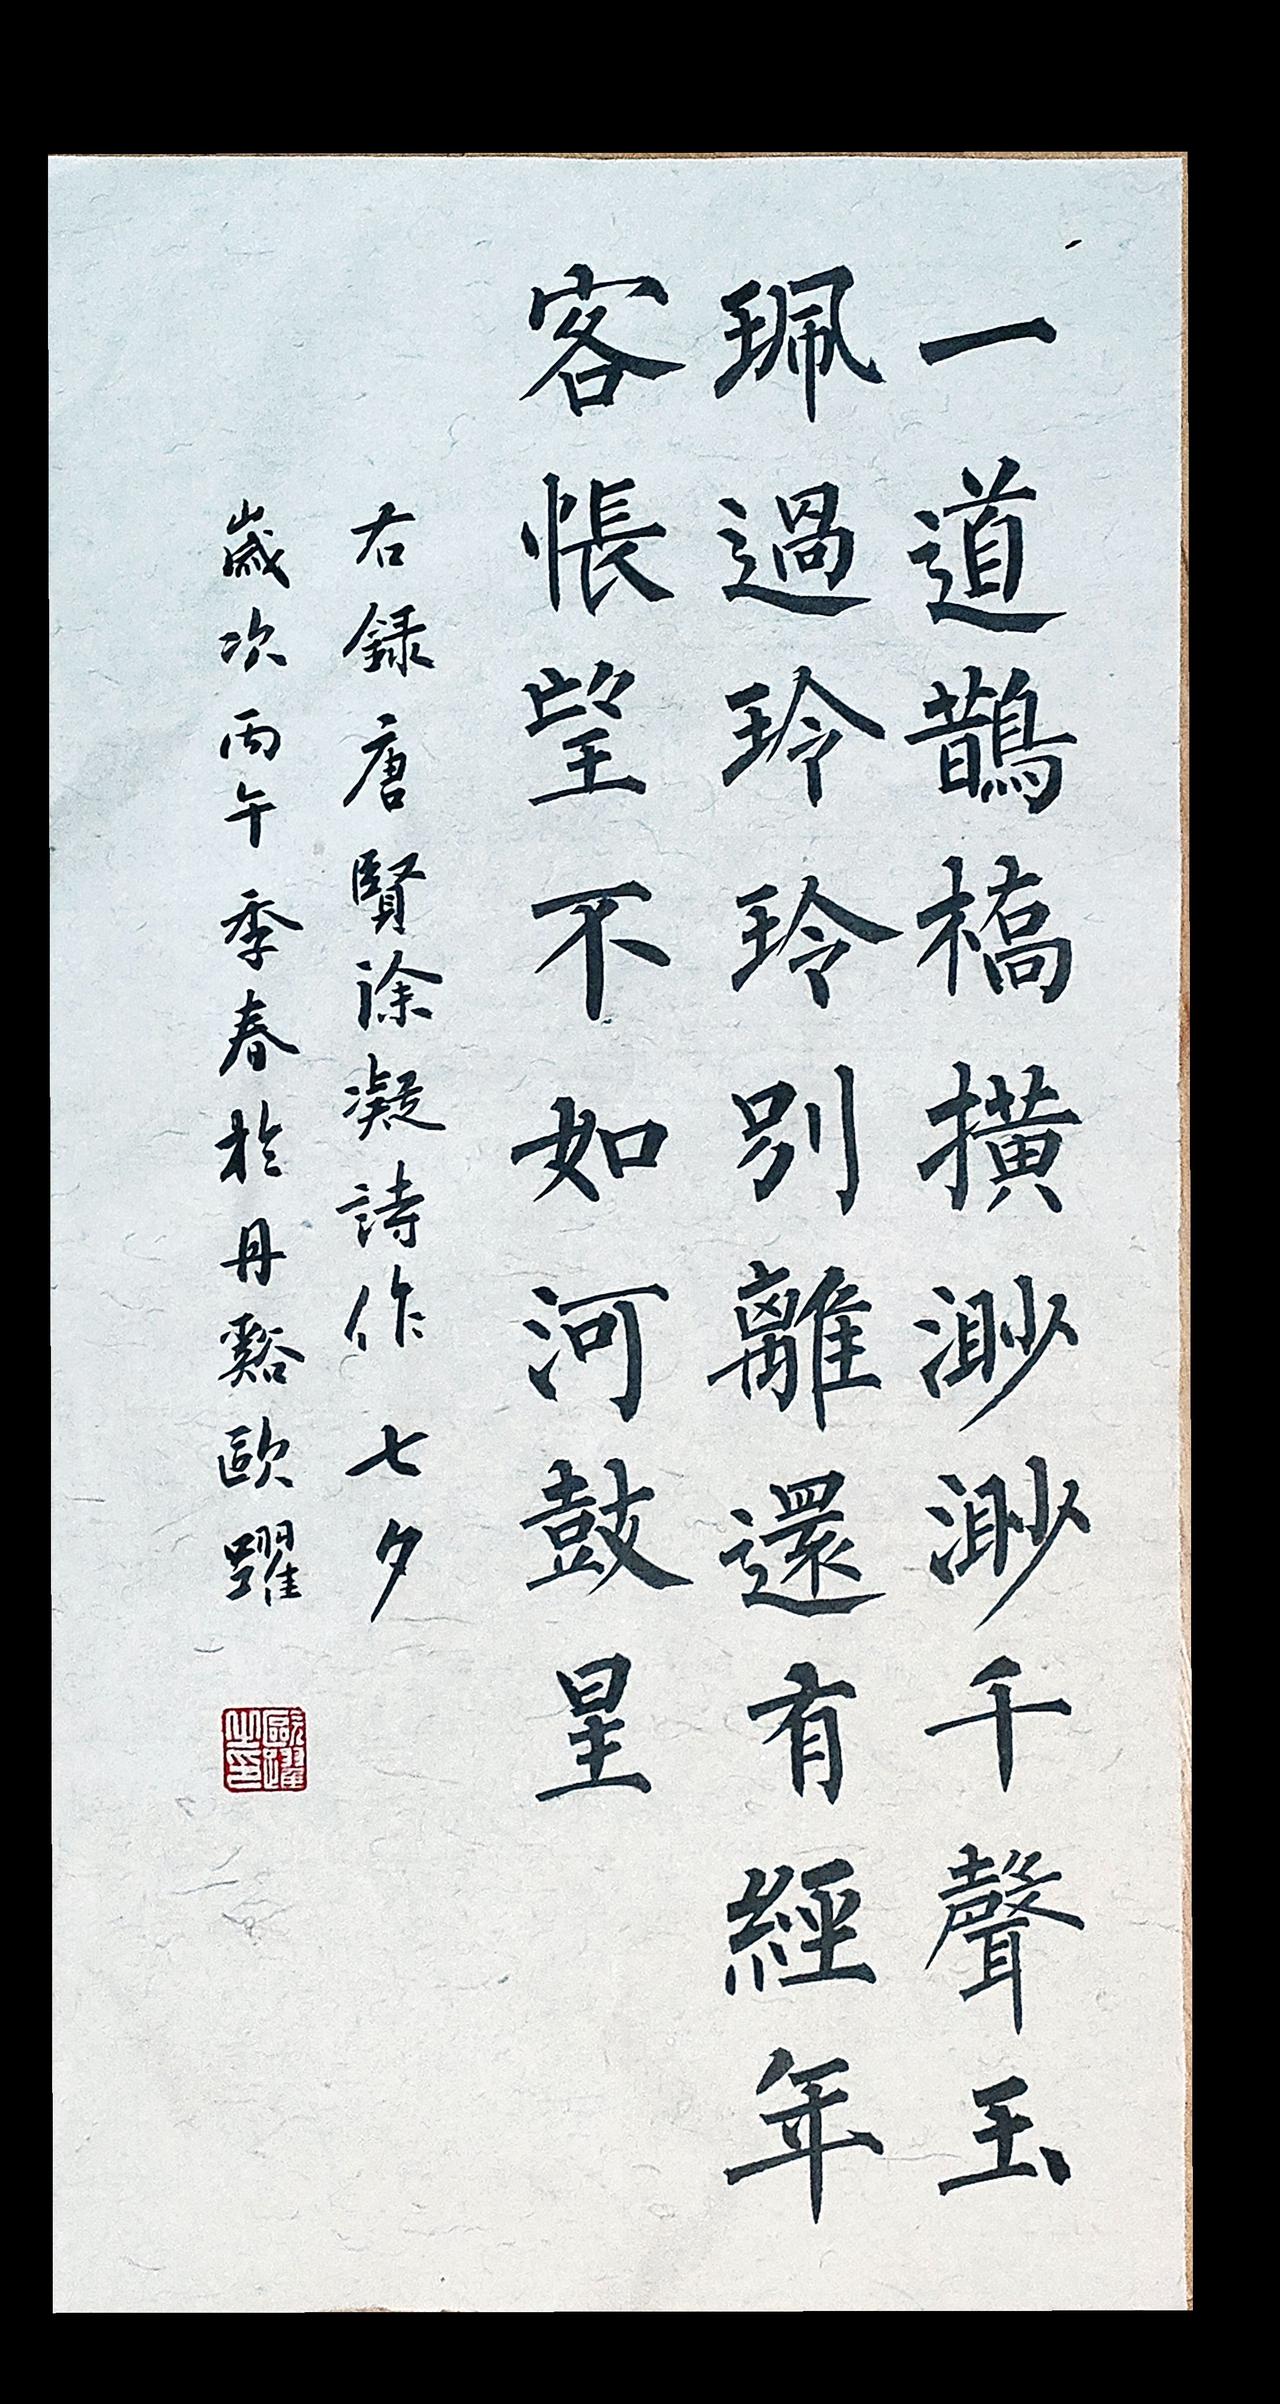 一道鵲橋橫渺渺千聲玉
珮過玲玲別離還有經年
客悵望不如河鼓星
右録唐賢徐凝詩作 七夕
歲次丙午季春於丹谿歐躍
歐躍之印